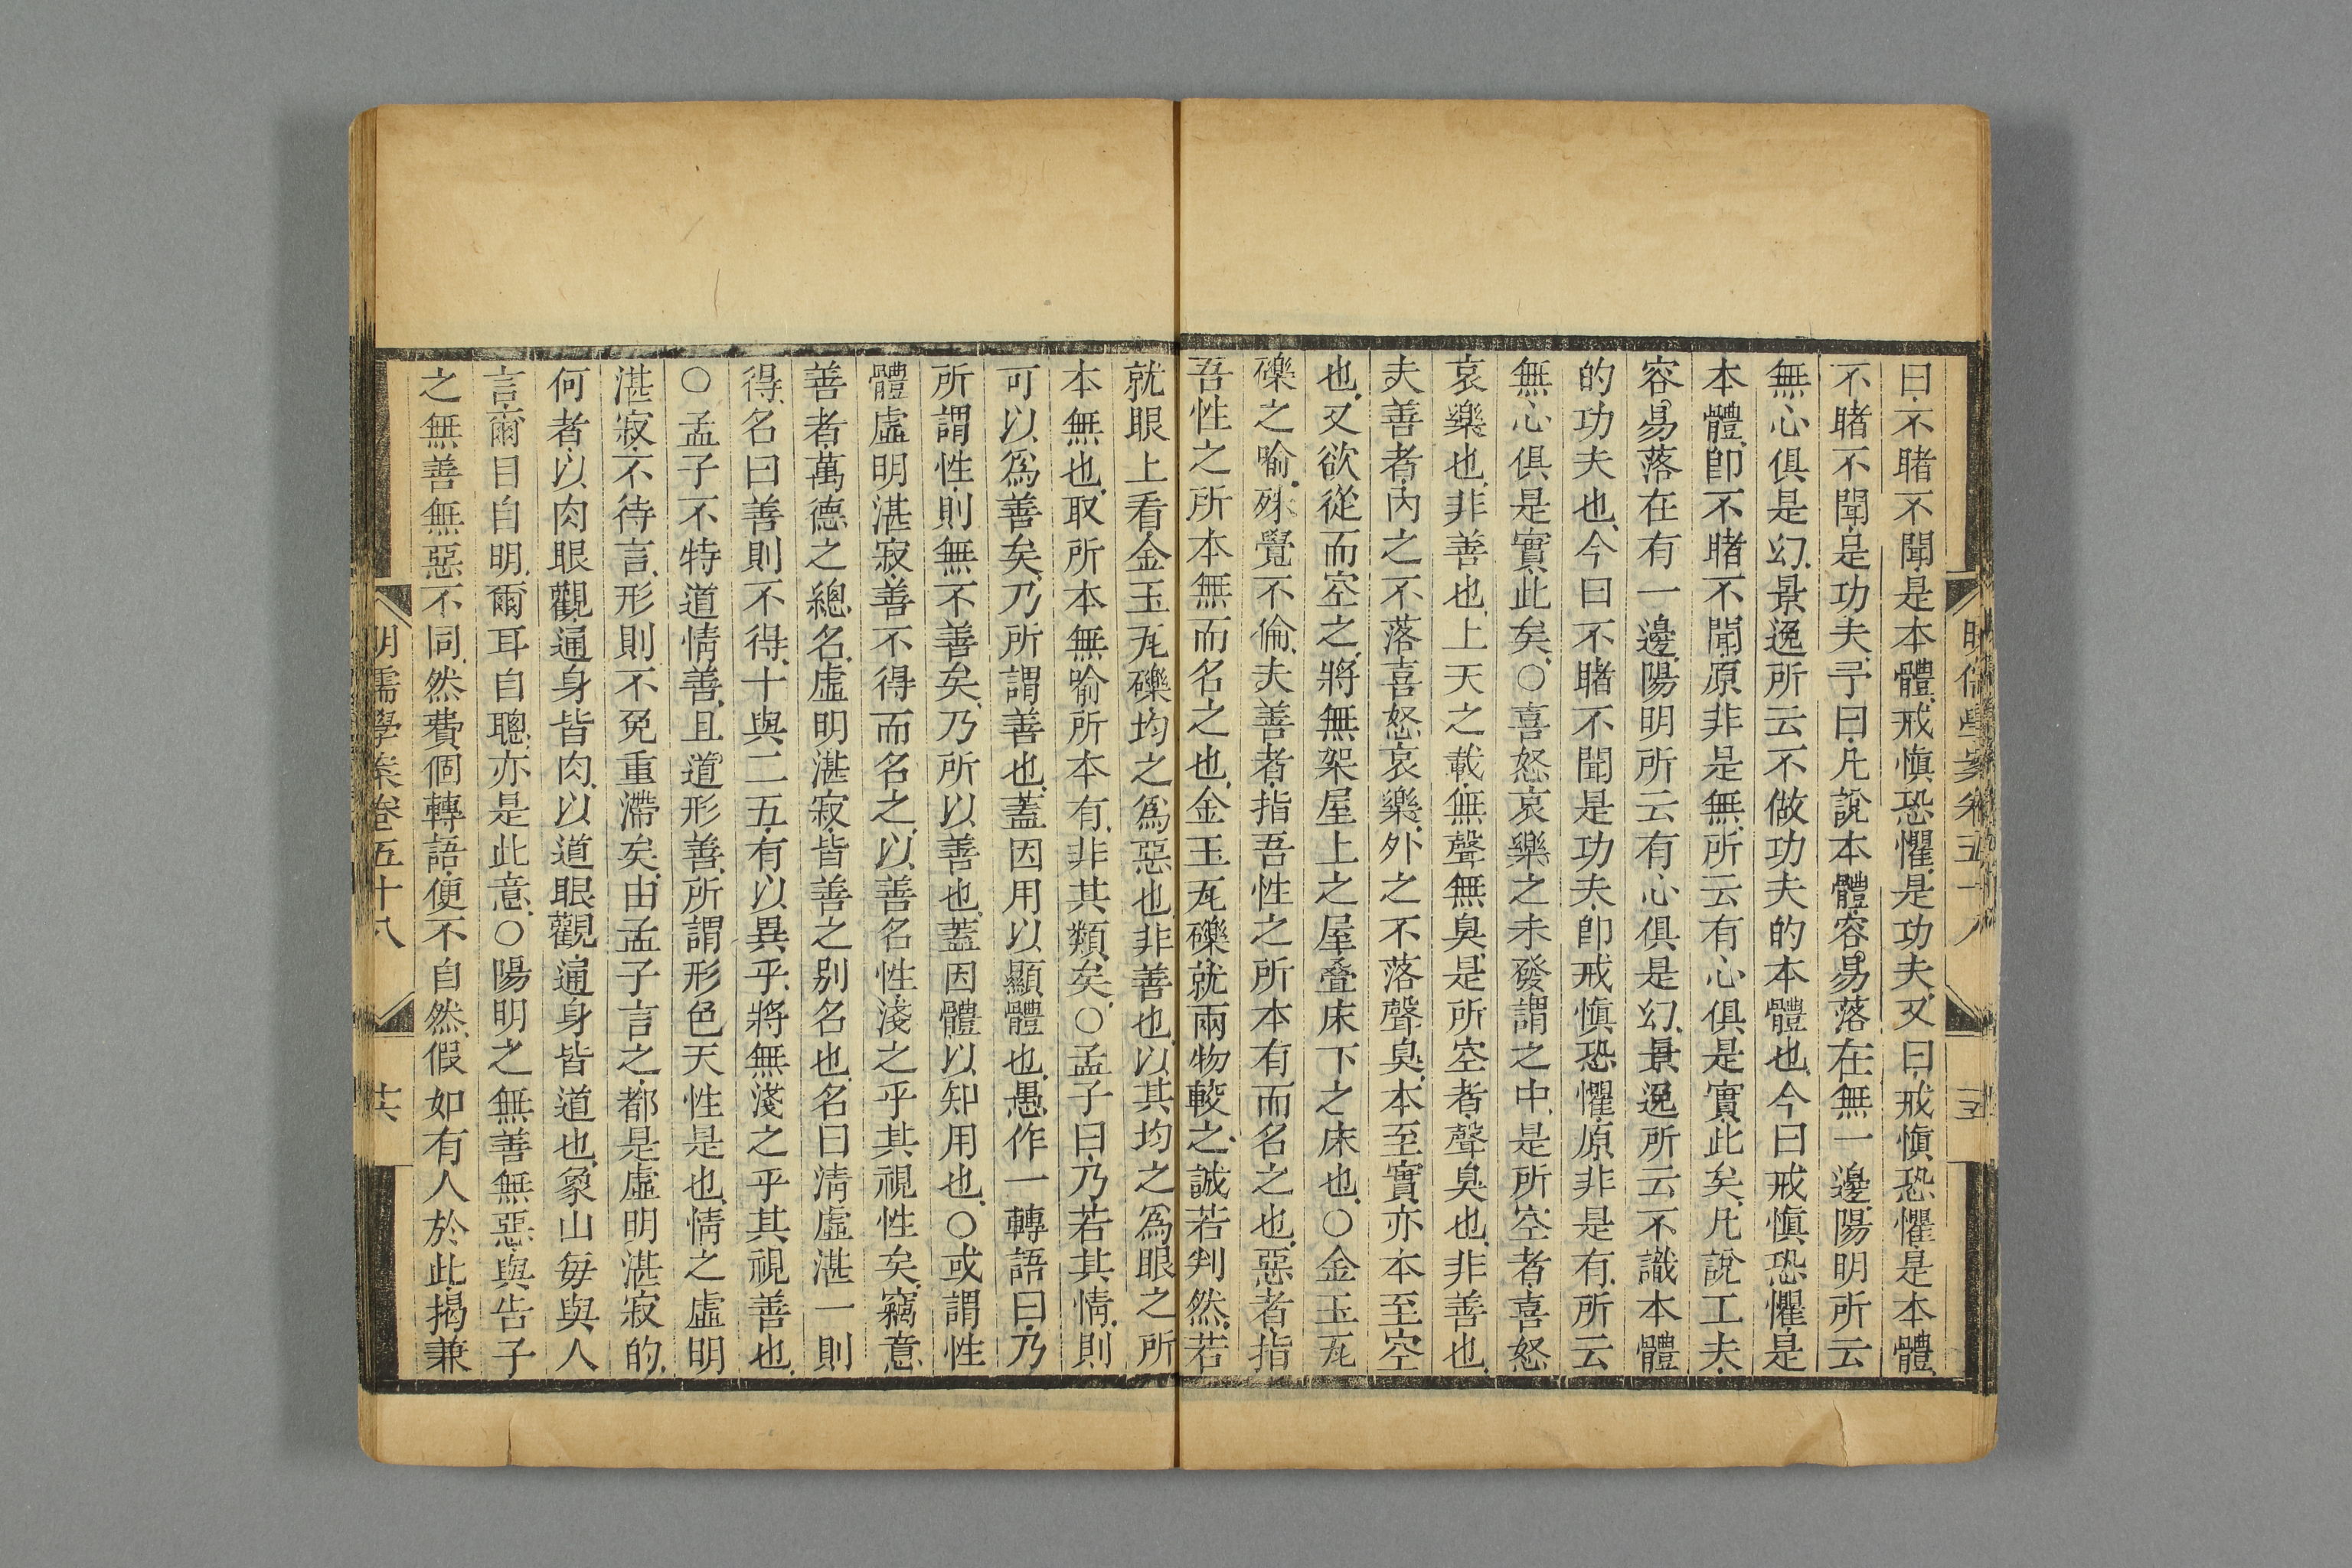 明儒學案卷五十八
曰不睹不聞是本體戒愼恐懼是功夫又曰戒愼恐懼是本體
不睹不聞是功夫予曰凡說本體容易落在無一邊陽明所云
無心俱是幻景逸所云不做功夫的本體也今曰戒愼恐懼是
本體卽不睹不聞原非是無所云有心俱是實此矣凡說工夫
容易落在有一邊陽明所云有心俱是幻景逸所云不識本體
的功夫也今曰不睹不聞是功夫卽戒愼恐懼原非是有所云
無心俱是實此矣○喜怒哀樂之未發謂之中是所空者喜怒
哀樂也非善也上天之載無聲無臭是所空者聲臭也非善也
夫善者內之不落喜怒哀樂外之不落聲臭本至實亦本至空
也又欲從而空之將無架屋上之屋疊床下之床也○金玉瓦
礫之喻殊覺不倫夫善者指吾性之所本有而名之也惡者指
吾性之所本無而名之也金玉瓦礫就兩物較之誠若判然若
就眼上看金玉瓦礫均之爲惡也非善也以其均之爲眼之所
本無也取所本無喻所本有非其類矣○孟子曰乃若其情則
可以爲善矣乃所謂善也蓋因用以顯體也愚作一轉語曰乃
所謂性則無不善矣乃所以善也蓋因體以知用也○或謂性
體虛明湛寂善不得而名之以善名性淺之乎其視性矣竊意
善者萬德之總名虛明湛寂皆善之别名也名曰淸虛湛一則
得名曰善則不得十與二五有以異乎將無淺之乎其視善也
○孟子不特道情善且道形善所謂形色天性是也情之虛明
湛寂不待言形則不免重滯矣由孟子言之都是虛明湛寂的
何者以肉眼觀通身皆肉以道眼觀通身皆道也象山每與人
言爾目自明爾耳自聰亦是此意○陽明之無善無惡與告子
之無善無惡不同然費個轉語便不自然假如有人於此揭兼
明儒學案卷五十八